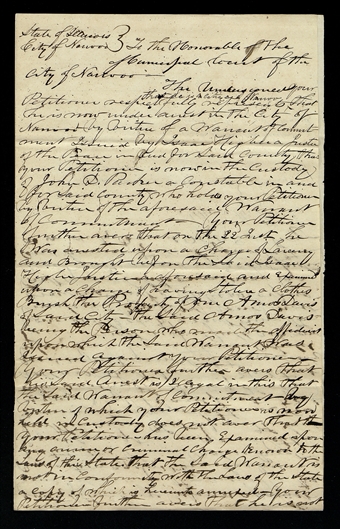 State of Illinois }
City of Nauvoo } To the Honorable of the
Municipal Court of the
City of Nauvoo
The Undersigned your
Petitioner respectfully represents that
he is now under arrest in the City of
Nauvoo by Virtue of a Warrant of Commit
ment Issued by Isaac a Justice
of the Peace in and for Said County, that
your Petitioner is now in the Custody
of John D. Parker a Constable in and
for Said County who holds your Petitioner
by Virtue of the aforesaid Warrant
of Commitment your Petitioner
further avers that on the 22 Inst he
was arrested upon a Charge of Larceny
and Brought before the Said Isaac
Justice aforesaid and Examined
upon a Charge of having stole a Clothes
Brush the Property of one Amos Davis
of Said City the Said Amos Davis
being the Person who made the affidavit
upon which the Said Warrant was
Issued against your Petitioner
Your Petitioner further avers that
the Said Arrest is Illegal in this that
the Said Warrant of Commitment by
Virtue of which your Petitioner is now
held in Custody does not aver that
your Petitioner has been Examined upon
any or Criminal Charge Known to the
Laws of this State, that the Said Warrant is
not in Conformity with the Laws of the State
a Copy of which is herewith annexed your
Petitioner further avers that he is not